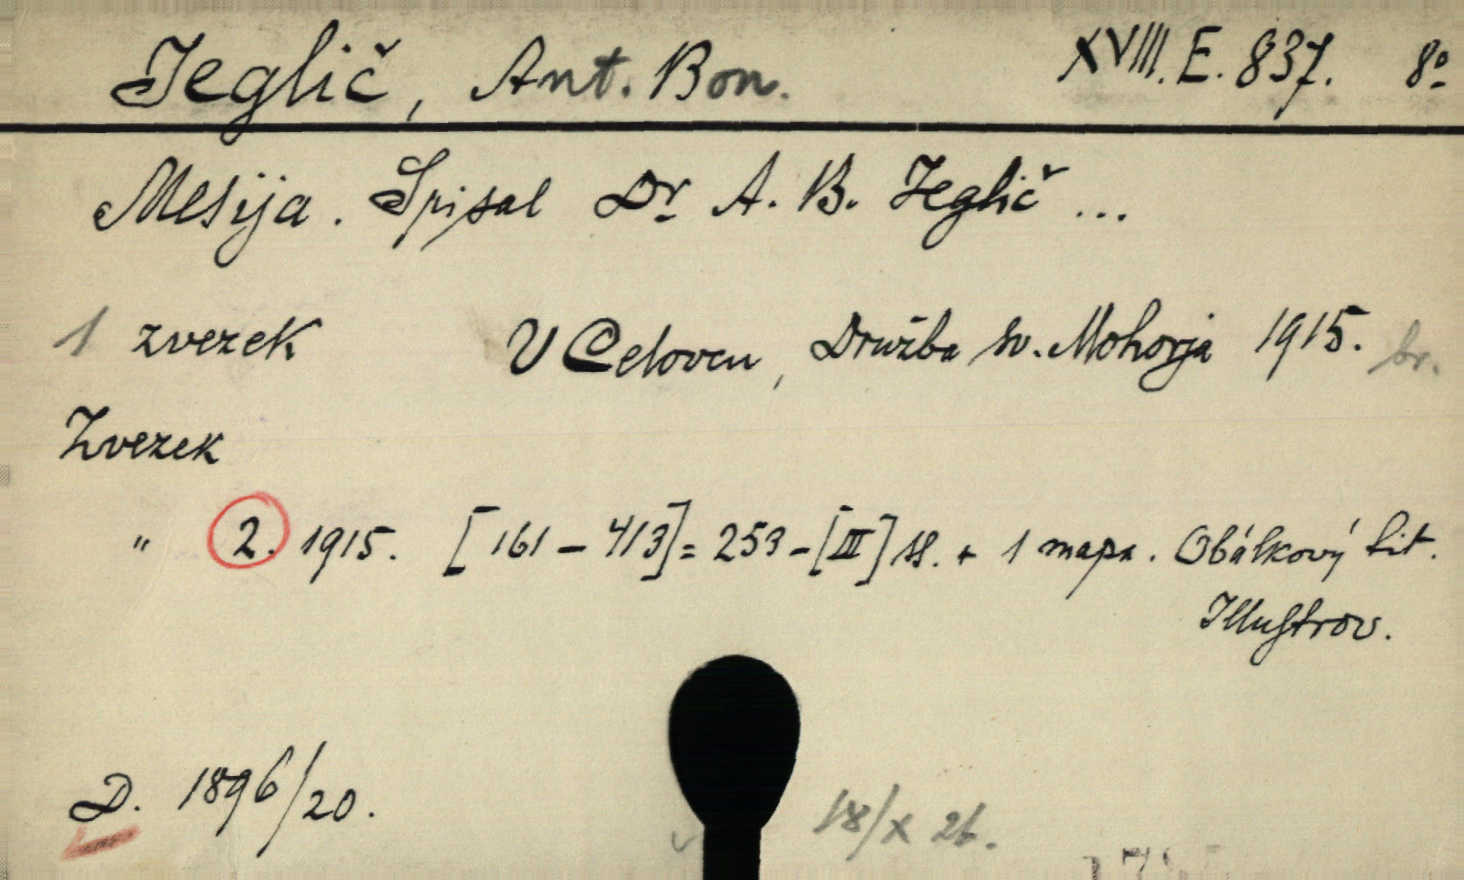 Jeglič, Ant. Bon. XVIII. E. 837. 8º
Mesija. Spisal Dr A. B. Jeglič ...
1 zvezek V Celovcu, Družba sv. Mohorja 1915. br.
Zvezek
" 2. 1915. [161 – 413] = 253 – [III] ss. + 1 mapa. Obálkový tit.
Illustrov.
D. 1896/20.
18/X 26.